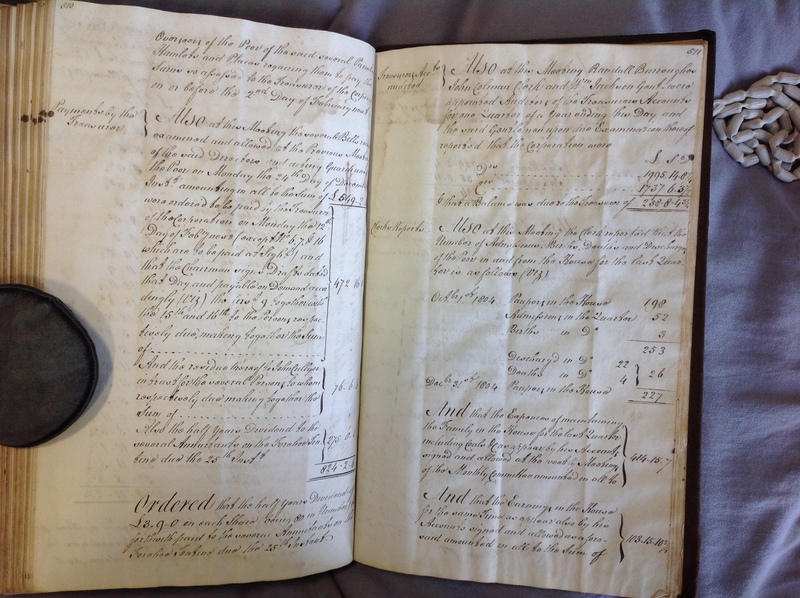 510
Overseers of the Poor of the said several Parishes
Hamlets and Places requiring them to pay the
same so assessed to the Treasurer of the Corporation
on or before the 2nd Day of February next
Payments by the
Treasurer
Also at this Meeting the several Bills
examined and allowed at the Previous Meeting
of the said Directors and acting Guardians of
the Poor on Monday the 24th Day of December
Inst. amounting in all to the Sum of £549.2
were ordered to be paid by the Treasurer
of the Corporation on Monday the 12th
Day of Feby next (except No. 6, 7, 8 & 16
which are to be paid at Sight) and
that the Chairman sign a Draft dated
that Day and payable on Demand accor
dingly (Viz) the 9 together with
the 15th and 16th to the Persons respec
tively due, making together the Sum
of 472.16
And the residue thereof to John Culling
in trust for the several Persons to whom
respectively due making together the
Sum of 76.6
Also the half Years Dividend to the
several Annuitants on the Forehoe Ton
tine due the 25th Inst. 275.0
824.2.8
Ordered that the half Years Dividend of
£3.9.0 on each Share being 80 in Number be
forthwith paid to the several Annuitants on the
Forehoe Tontine due the 25th Instant
511
Treasurers Accts
audited
Also at this Meeting Randall Burroughes
John Colman Clerk and Wm Jackson Gent. were
appointed Auditors of the Treasurers Accounts
for one Quarter of a Year ending this Day and
the said Gentlemen upon due Examination thereof
reported that the Corporation were
£ s d
Drs 1995.14.8
Crs 1737.6.3
& that a Balance was due to the Treasurer of 258.8.4
Clerks Reports
Also at this Meeting the Clerk reported that the
Number of Admissions, Births, Deaths and Discharges
of the Poor in and from the House for the last Quar
ter is as follows (Viz)
Octbr 1st 1804 Paupers in the House 198
Admissions in the Quarter 52
Births in Do 3
253
Discharged in Do 22
Deaths in Do 4 } 26
Decbr 31st 1804 Paupers in the House 227
And that the Expences of maintaining
the Family in the House for the last Quarter
including Coals &c as appear by his Accounts
signed and allowed at the next Meeting
of the Monthly Committee amounted in all to 414.15.7
And that the Earnings in the House
for the same Time as appear also by his
Accounts signed and allowed as afore
said amounted in all to the Sum of 103.15.10